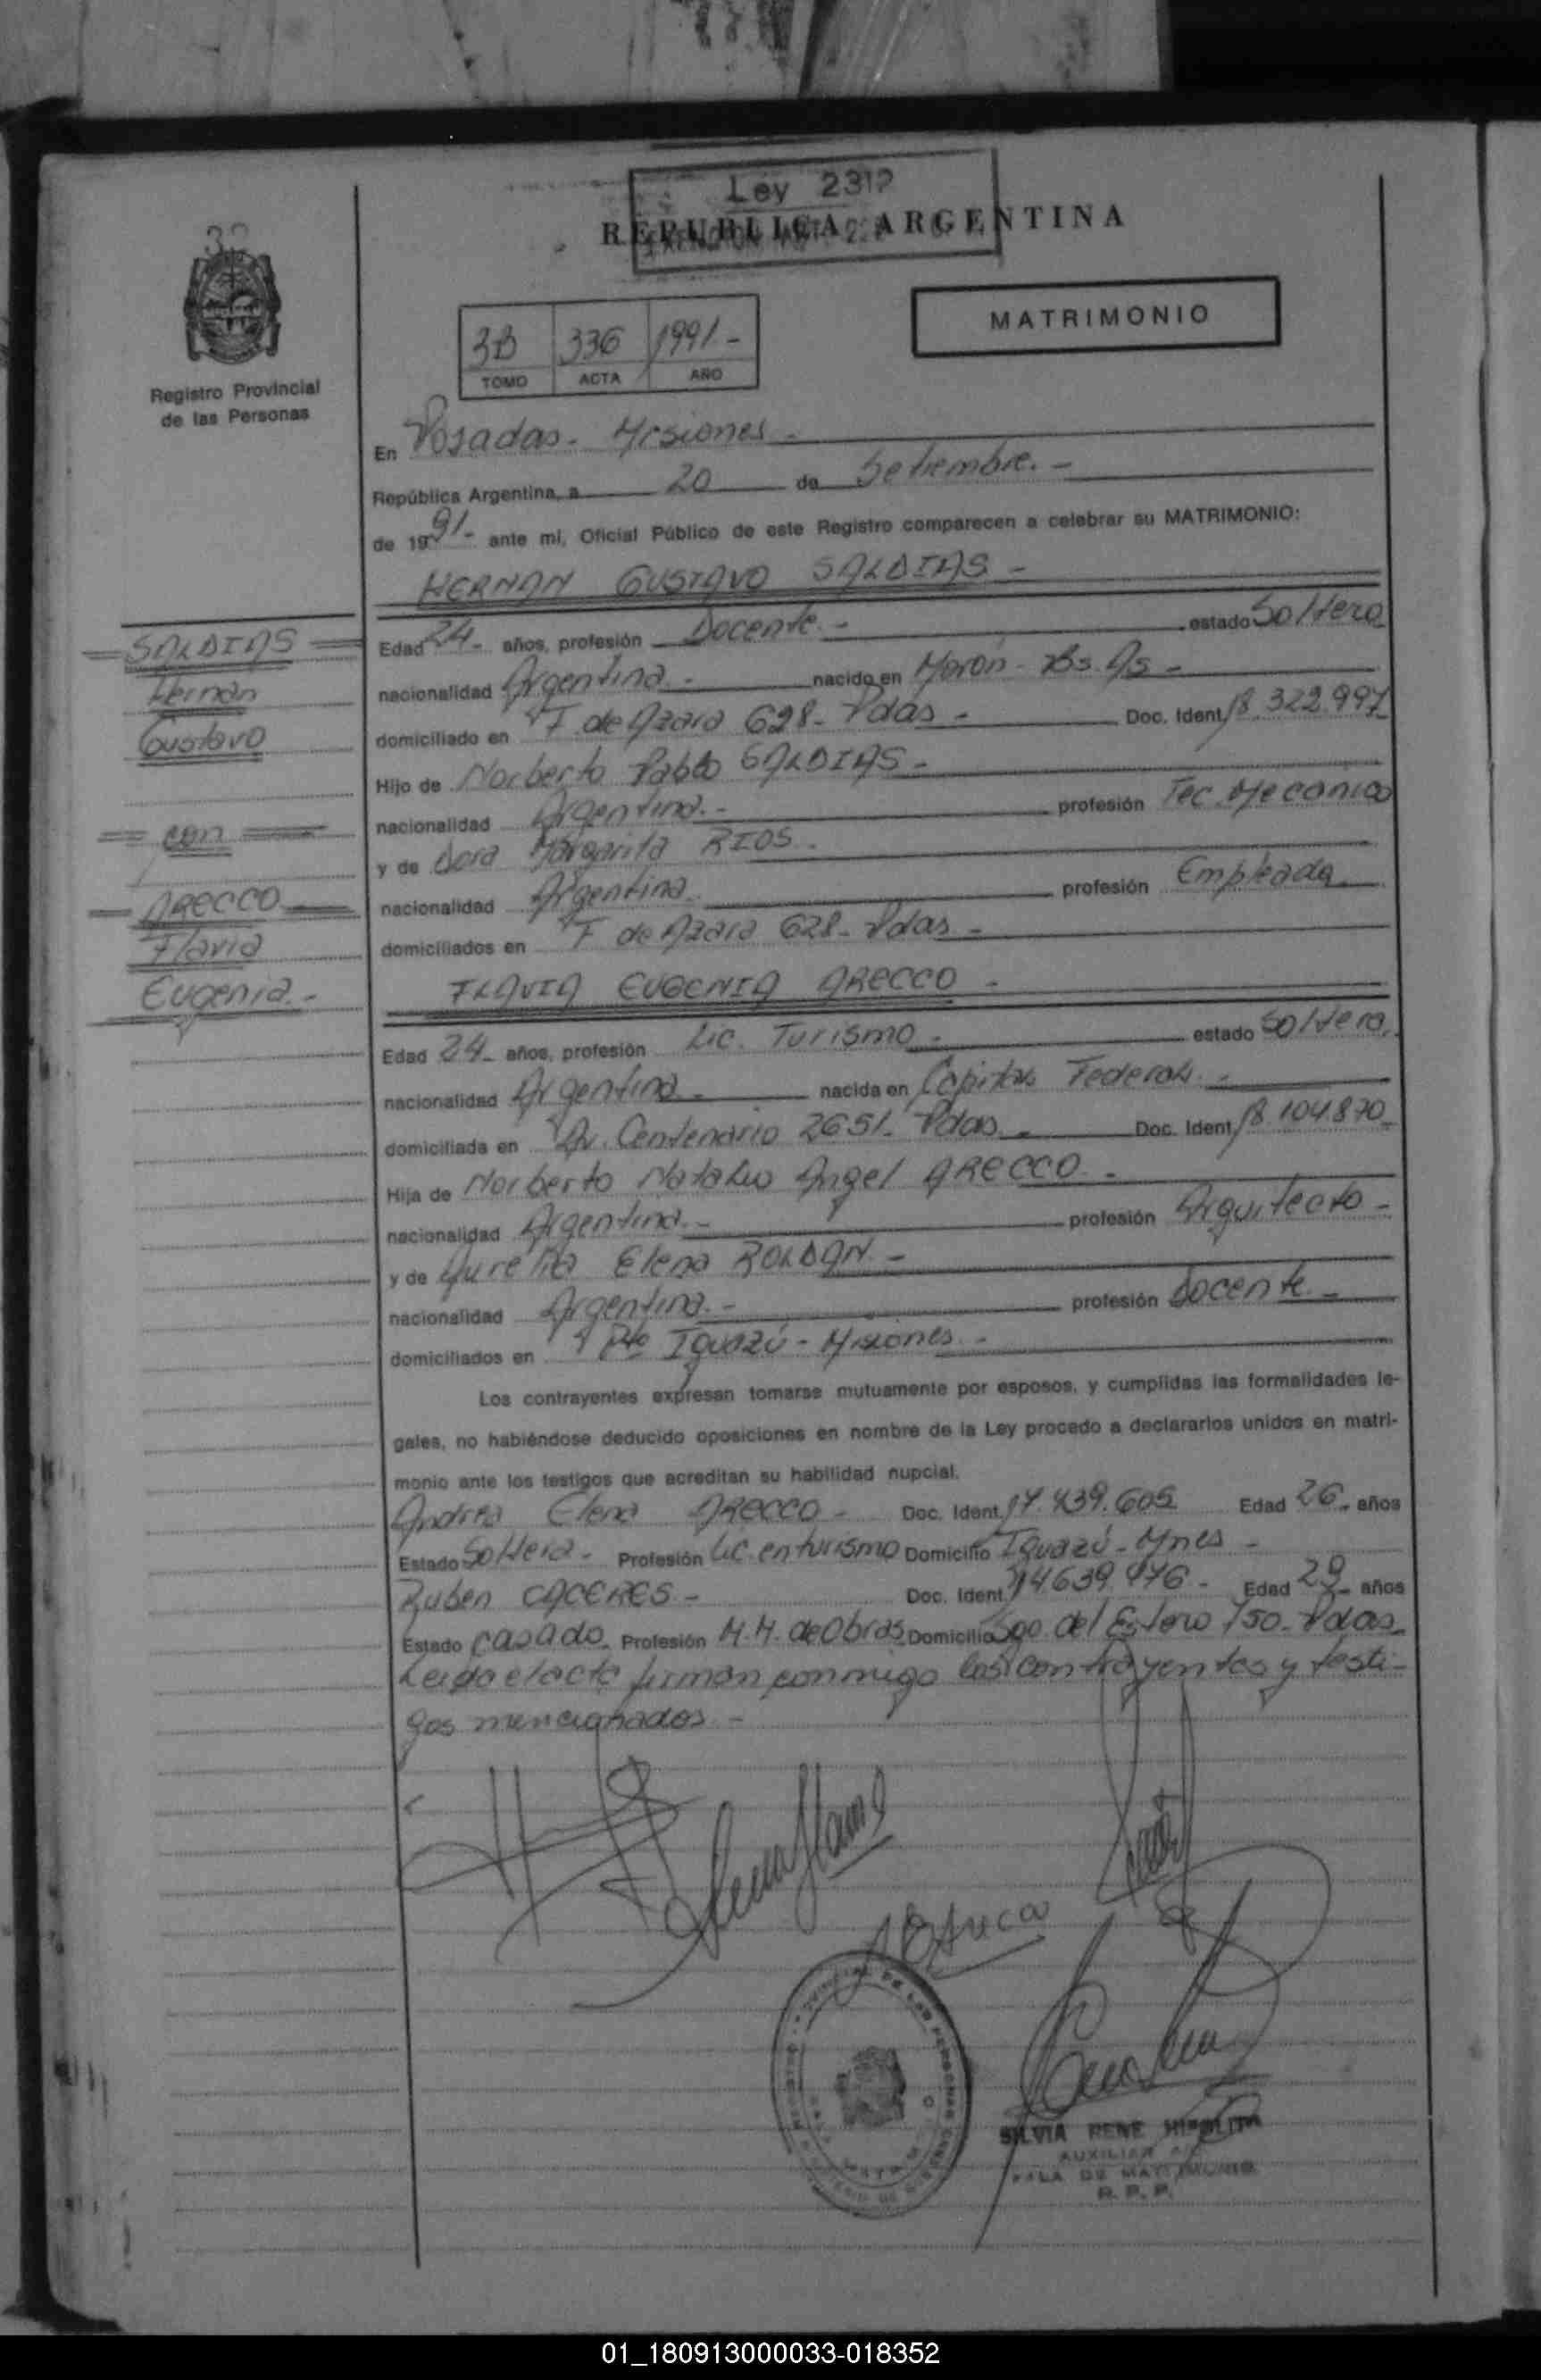 Ley 2312
REPUBLICA ARGENTINA
32
Registro Provincial
de las Personas
MATRIMONIO
3B 336 1991.-
TOMO ACTA AÑO
En Posadas - Misiones -
República Argentina, a 20 de Setiembre. -
de 1991- ante mi, Oficial Público de este Registro comparecen a celebrar su MATRIMONIO:
HERNAN GUSTAVO SALDIAS -
SALDIAS
Hernán
Gustavo
con
ARECCO
Flavia
Eugenia. -
Edad 24- años, profesión Docente. - estado Soltero
nacionalidad Argentina - nacido en Morón - Bs. As -
domiciliado en F. de Azara 628- Pdas - Doc. Ident. 18.322.997
Hijo de Norberto Pablo SALDIAS -
nacionalidad Argentina. - profesión Tec. Mecanico
y de Dora Margarita RIOS.
nacionalidad Argentina profesión Empleada
domiciliados en F de Azara 628- Pdas -
FLAVIA EUGENIA ARECCO -
Edad 24- años, profesión Lic. Turismo - estado Soltera.
nacionalidad Argentina - nacida en Capital Federal. -
domiciliada en Av. Centenario 2651- Pdas - Doc. Ident. 18.104.870
Hija de Norberto Natalio Angel ARECCO -
nacionalidad Argentina. - profesión Arquitecto -
y de Aurelia Elena ROLDAN -
nacionalidad Argentina. - profesión Docente. -
domiciliados en Pto Iguazú - Misiones -
Los contrayentes expresan tomarse mutuamente por esposos, y cumplidas las formalidades le-
gales, no habiéndose deducido oposiciones en nombre de la Ley procedo a declararlos unidos en matri-
monio ante los testigos que acreditan su habilidad nupcial.
Andrea Elena ARECCO - Doc. Ident. 17.439.605 Edad 26- años
Estado Soltera - Profesión Lic. en turismo Domicilio Iguazú - Mnes -
Ruben CACERES - Doc. Ident. 14.639.476 - Edad 29- años
Estado casado Profesión M.M. de Obras Domicilio Sgo. del Estero 150- Pdas
Leída el acta firman conmigo los contrayentes y testi-
gos mencionados -
SILVIA RENE HIPOLITA
AUXILIAR A/C
SALA DE MATRIMONIO
R. P. P.
01_180913000033-018352